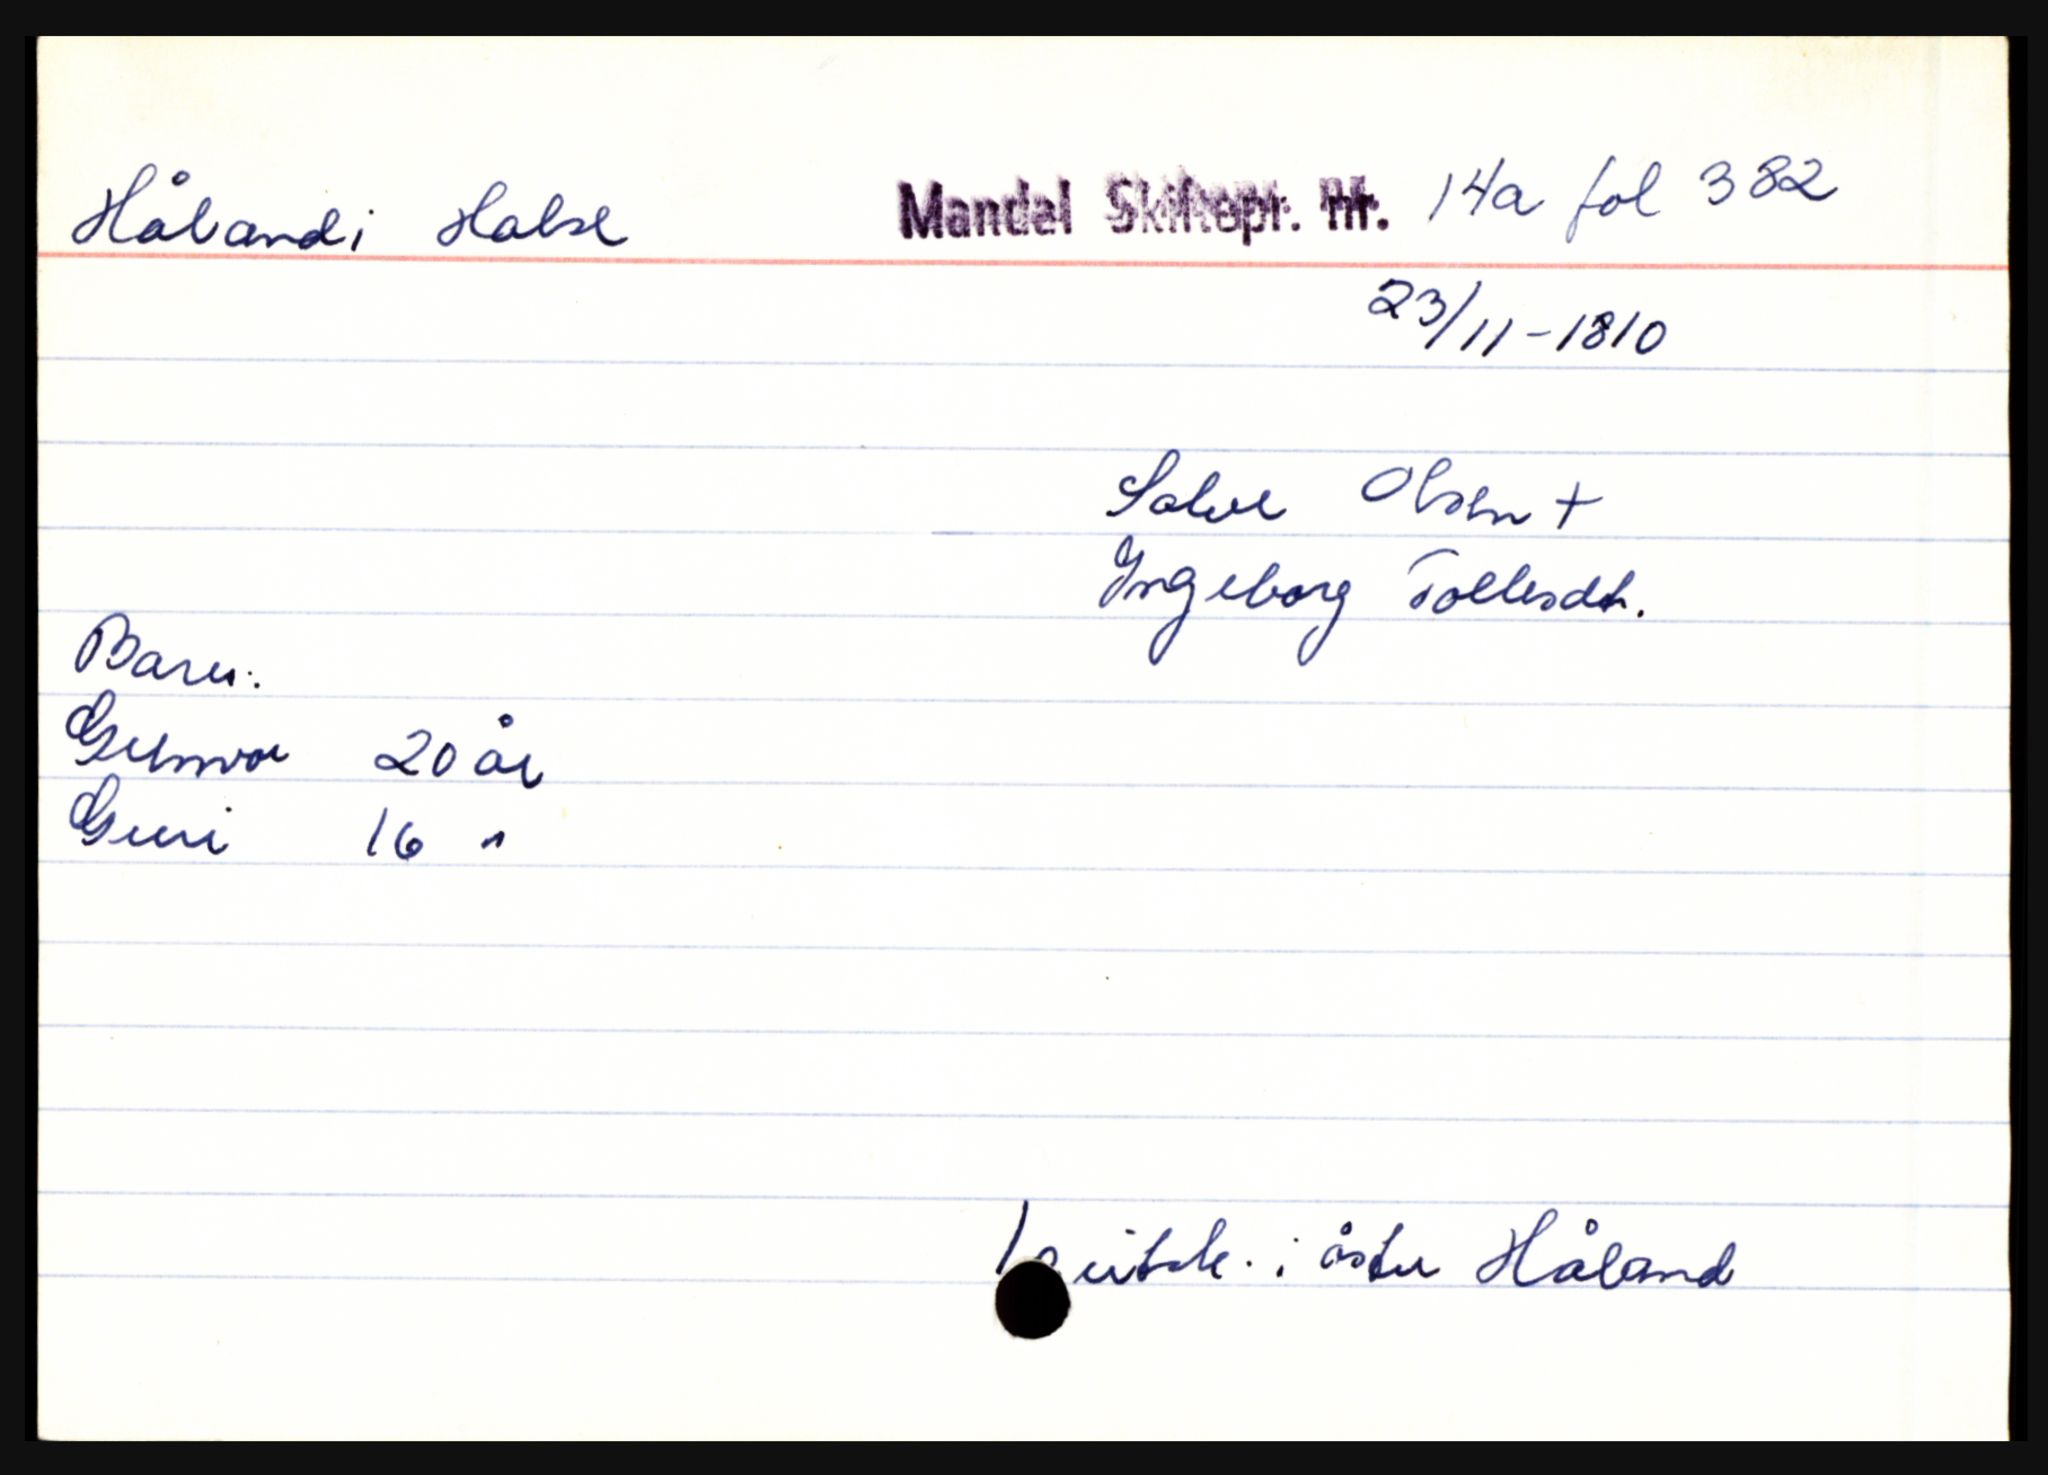 Håland i Halse Mandal Skiftepr. nr. 14a fol 382
23/11-1810
Salve Olsen +
Ingeborg Tollesdt.
Barn:
Gunvor 20 år
Guri 16 "
i östre Håland